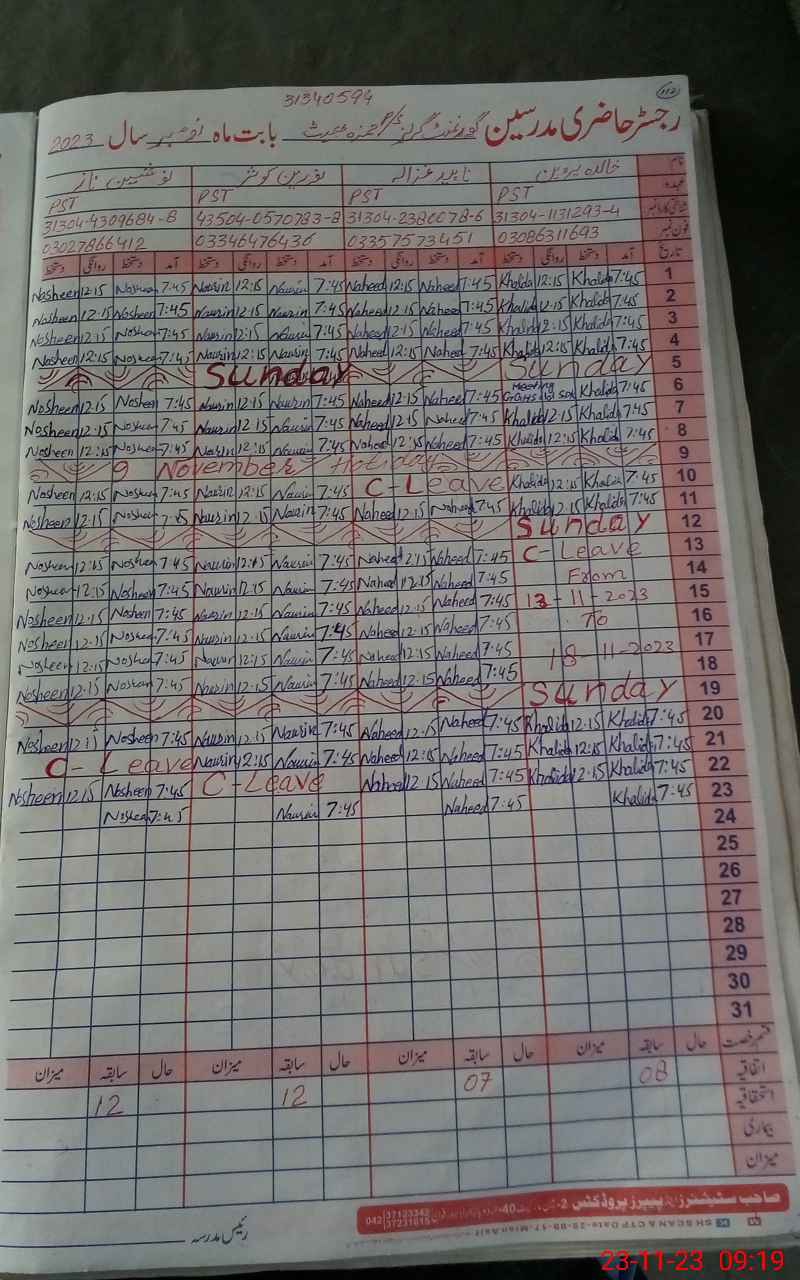 31340594
112
رجسٹر حاضری مدرسین گورنمنٹ گرلز بابت ماہ نومبر سال 2023
نام خالدہ پروین ناہید غزالہ نورین کوثر نوشین ناز
عہدہ PST PST PST PST
31304-1131293-4 31304-2380078-6 43504-0570783-8 31304-4309684-8
فون نمبر 03086311693 03357573451 03346476436 03027866412
تاریخ آمد دستخط روانگی دستخط آمد دستخط روانگی دستخط آمد دستخط روانگی دستخط آمد دستخط روانگی دستخط
Nosheen 12:15 Nosheen 7:45 Naurin 12:15 Naurin 7:45 Naheed 12:15 Naheed 7:45 Khalida 12:15 Khalida 7:45 1
Nosheen 12:15 Nosheen 7:45 Naurin 12:15 Naurin 7:45 Naheed 12:15 Naheed 7:45 Khalida 12:15 Khalida 7:45 2
Nosheen 12:15 Nosheen 7:45 Naurin 12:15 Naurin 7:45 Naheed 12:15 Naheed 7:45 Khalida 12:15 Khalida 7:45 3
Nosheen 12:15 Nosheen 7:45 Naurin 12:15 Naurin 7:45 Naheed 12:15 Naheed 7:45 Khalida 12:15 Khalida 7:45 4
Sunday Sunday 5
Nosheen 12:15 Nosheen 7:45 Naurin 12:15 Naurin 7:45 Naheed 12:15 Naheed 7:45 Meeting Khalida 7:45 6
Nosheen 12:15 Nosheen 7:45 Naurin 12:15 Naurin 7:45 Naheed 12:15 Naheed 7:45 Khalida 12:15 Khalida 7:45 7
Nosheen 12:15 Nosheen 7:45 Naurin 12:15 Naurin 7:45 Naheed 12:15 Naheed 7:45 Khalida 12:15 Khalida 7:45 8
9 November Holiday 9
Nosheen 12:15 Nosheen 7:45 Naurin 12:15 Naurin 7:45 C-Leave Khalida 12:15 Khalida 7:45 10
Nosheen 12:15 Nosheen 7:45 Naurin 12:15 Naurin 7:45 Naheed 12:15 Naheed 7:45 Khalida 12:15 Khalida 7:45 11
Sunday 12
Nosheen 12:15 Nosheen 7:45 Naurin 12:15 Naurin 7:45 Naheed 12:15 Naheed 7:45 C-Leave 13
Nosheen 12:15 Nosheen 7:45 Naurin 12:15 Naurin 7:45 Naheed 12:15 Naheed 7:45 From 14
Nosheen 12:15 Nosheen 7:45 Naurin 12:15 Naurin 7:45 Naheed 12:15 Naheed 7:45 13-11-2023 15
Nosheen 12:15 Nosheen 7:45 Naurin 12:15 Naurin 7:45 Naheed 12:15 Naheed 7:45 To 16
Nosheen 12:15 Nosheen 7:45 Naurin 12:15 Naurin 7:45 Naheed 12:15 Naheed 7:45 18-11-2023 17
Nosheen 12:15 Nosheen 7:45 Naurin 12:15 Naurin 7:45 Naheed 12:15 Naheed 7:45 18
Sunday 19
Nosheen 12:15 Nosheen 7:45 Naurin 12:15 Naurin 7:45 Naheed 12:15 Naheed 7:45 Khalida 12:15 Khalida 7:45 20
C-Leave Naurin 12:15 Naurin 7:45 Naheed 12:15 Naheed 7:45 Khalida 12:15 Khalida 7:45 21
Nosheen 12:15 Nosheen 7:45 C-Leave Naheed 12:15 Naheed 7:45 Khalida 12:15 Khalida 7:45 22
Nosheen 7:45 Naurin 7:45 Naheed 7:45 Khalida 7:45 23
24
25
26
27
28
29
30
31
قسم رخصت حال سابقہ میزان حال سابقہ میزان حال سابقہ میزان حال سابقہ میزان
اتفاقیہ 08 07 12 12
استحقاقیہ
بیماری
میزان
صاحب سٹیشنرز اینڈ پیپرز پروڈکٹس
042 37123342
37231615
رئیس مدرسہ
23-11-23 09:19